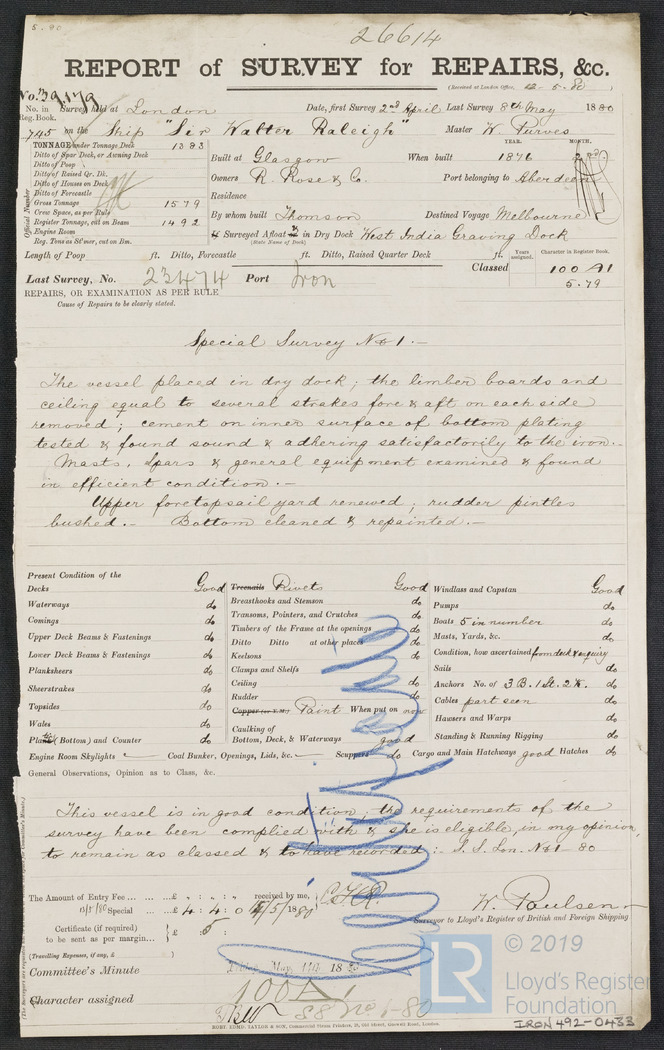 5.80
26614
REPORT of SURVEY for REPAIRS, &c.
(Received at London Office, 12-5-80)
No. in Reg. Book. Survey held at London Date, first Survey 2nd April Last Survey 8th May 1880
745 on the Ship "Sir Walter Raleigh" Master W. Purves
TONNAGE under Tonnage Deck 1383
Ditto of Spar Deck, or Awning Deck
Ditto of Poop
Ditto of Raised Qr. Dk.
Ditto of Houses on Deck
Ditto of Forecastle
Gross Tonnage 1579
Crew Space, as per Rule
Register Tonnage, cut on Beam 1492
Engine Room
Reg. Tons as St'mer, cut on Bm.
Official Number
YEAR. MONTH.
Built at Glasgow When built 1876
Owners R. Rose & Co. Port belonging to Aberdeen
Residence
By whom built Thomson Destined Voyage Melbourne
If Surveyed Afloat or in Dry Dock West India Graving Dock
(State Name of Dock)
Length of Poop ft. Ditto, Forecastle ft. Ditto, Raised Quarter Deck ft.
Years assigned. Character in Register Book.
Classed 100 A1
5.79
Last Survey, No. 23474 Port Iron
REPAIRS, OR EXAMINATION AS PER RULE
Cause of Repairs to be clearly stated.
Special Survey No 1. —
The vessel placed in dry dock; the limber boards and
ceiling equal to several strakes fore & aft on each side
removed; cement on inner surface of bottom plating
tested & found sound & adhering satisfactorily to the iron. —
Masts, Spars & general equipment examined & found
in efficient condition. —
Upper foretopsail yard renewed; rudder pintles
bushed. — Bottom cleaned & repainted. —
Present Condition of the
Decks Good
Waterways do
Comings do
Upper Deck Beams & Fastenings do
Lower Deck Beams & Fastenings do
Planksheers do
Sheerstrakes do
Topsides do
Wales do
Plating (Bottom) and Counter do
Treenails Rivets Good
Breasthooks and Stemson do
Transoms, Pointers, and Crutches do
Timbers of the Frame at the openings do
Ditto Ditto at other places do
Keelsons do
Clamps and Shelfs do
Ceiling do
Rudder do
Copper (or Y.M.) Paint When put on now
Caulking of
Bottom, Deck, & Waterways good
Windlass and Capstan Good
Pumps do
Boats 5 in number do
Masts, Yards, &c. do
Condition, how ascertained from deck & enquiry
Sails do
Anchors No. of 3 B. 1 St. 2 K. do
Cables part seen do
Hawsers and Warps do
Standing & Running Rigging do
Engine Room Skylights — Coal Bunker, Openings, Lids, &c. — Scuppers do Cargo and Main Hatchways good Hatches do
General Observations, Opinion as to Class, &c.
This vessel is in good condition; the requirements of the
survey have been complied with & she is eligible, in my opinion,
to remain as classed & to have recorded:- S.S. Lon. No 1-80
The Amount of Entry Fee ... £ : : received by me,
Special £ 4 : 4 : 0 1880
Certificate (if required) £ 5
to be sent as per margin...
(Travelling Expenses, if any, £ )
W. Paulsen
Surveyor to Lloyd's Register of British and Foreign Shipping
Committee's Minute
Friday May 14th 1880
Character assigned
100 A1
SS No 1-80
ROBT. EDMD. TAYLOR & SON, Commercial Steam Printers, 19, Old Street, Goswell Road, London.
© 2019
LR
Lloyd's Register
Foundation
IRON 492-0433